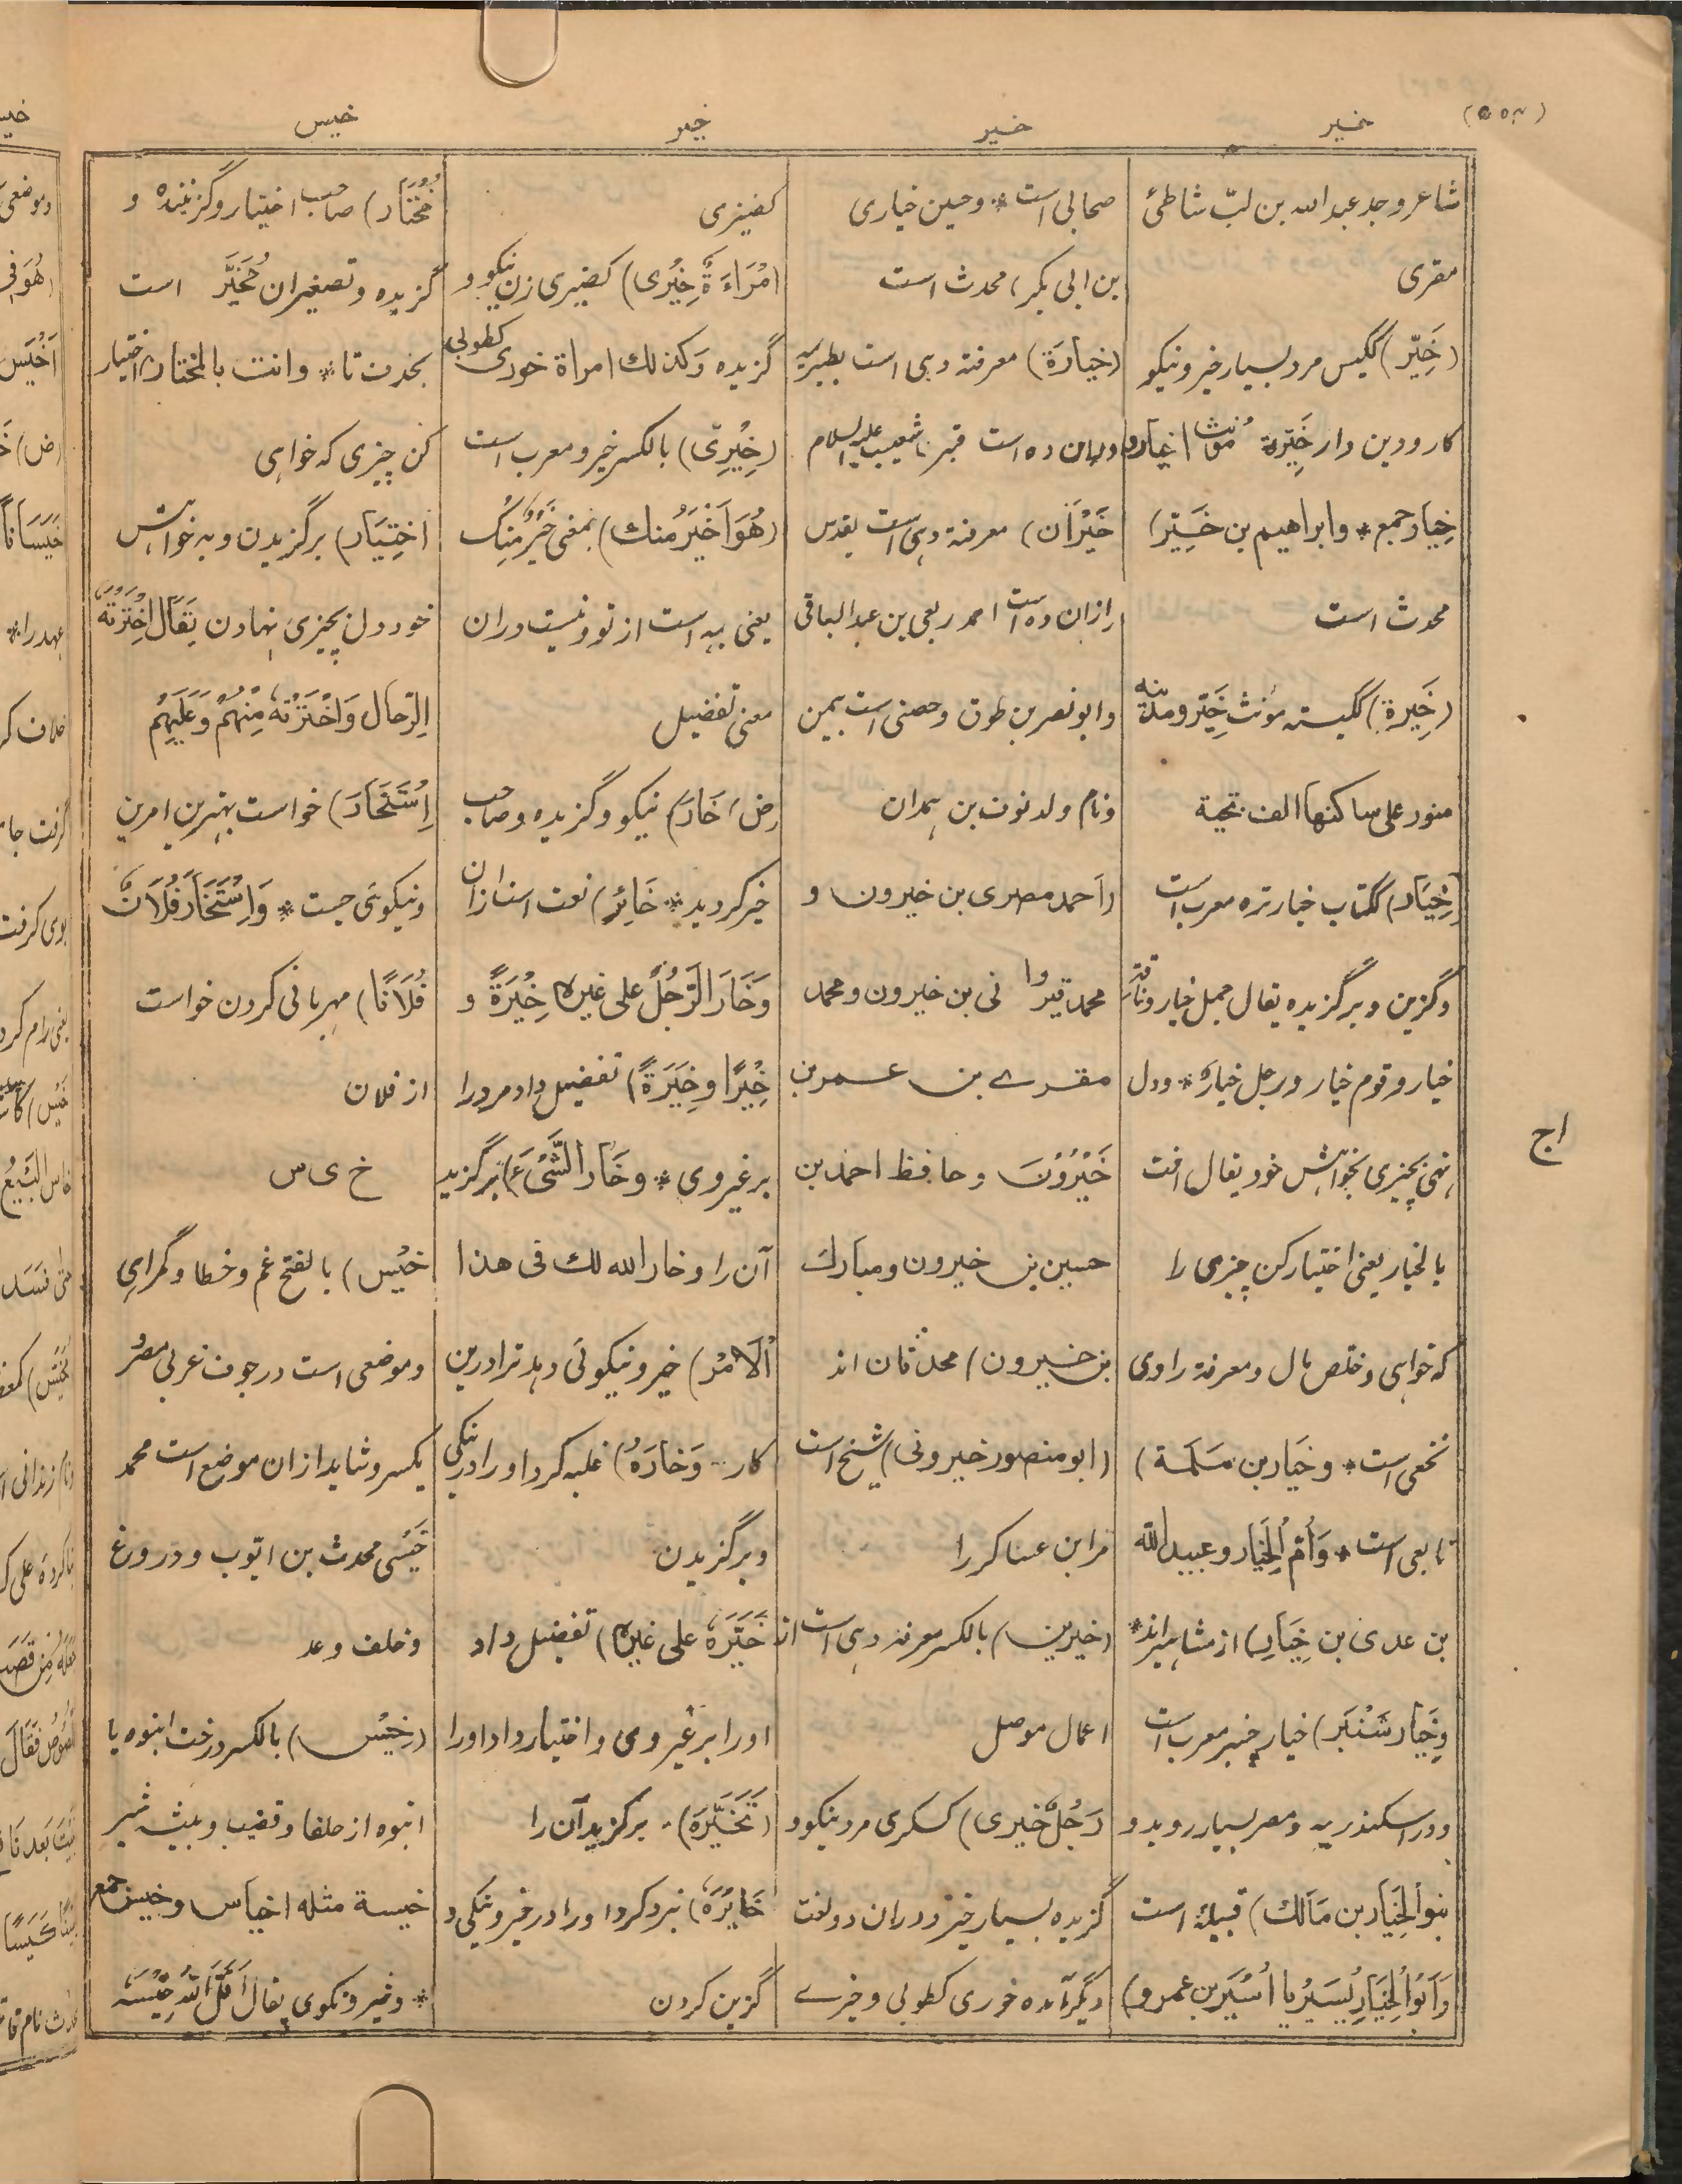 (۵۵۴)
خیر
خیر
خیر
خیس
شاعر وجد عبد الله بن لبّ شاطئ
مقری
(خَیِّر) ککیس مرد بسیار خیر ونیکو
کار ودین دار خَیِّرة مؤنث اخیار و
خِیار جمع * وابراهیم بن خَیِّر)
محدث است
(خَیِرة) ککیسته مؤنث خَیِّر ومدینه
منور علی ساکنها الف تحیة
(خِیَار) ککتاب خیار تره معرب است
وگزین وبرگزیده یقال جمل خیار وناقة
خیار وقوم خیار ورجل خیار * ودل
نهی بچیزی بخواهش خود یقال انت
بالخیار یعنی اختیار کن چیزی را
که خواهی وخلص بال ومعرفة راوی
نخعی است * وخیار بن سَلَمة)
تابعی است * وَأُمّ الخِیَار وعبید الله
بن عدی بن خِیَار) از مشاهیراند *
وخِیَار شَنْبَر) خیار چنبر معرب است
ودر اسکندریه ومصر بسیار روید و
بنو الخِیَار بن مَالك) قبیلۀ است
وَأَبُو الخِیَار یُسَیْر یا أُسَیْر بن عمرو)
صحابی است * وحسین خیاری
بن ابی بکر، محدث است
(خیارَة) معرفة دهی است بطبریه
ودران ده است قبر شعیب علیه السلام
خَیْرَان) معرفة دهی است بقدس
ازان ده است احمد ربعی بن عبد الباقی
وابو نصر بن طوق وحصنی است بیمن
ونام ولد نوف بن همدان
(احمد مصری بن خیرون و
محمد قیروانی بن خیرون ومحمد
مقرے بن عـمر بن
خَیْرُوْنَ وحافظ احمد بن
حسین بن خیرون ومبارك
بن خـیرون) محدثان اند
(ابو منصور خیرونی) شیخ است
مر ابن عساکر را
(خیرین) بالکسر معرفه دهی است از
اعمال موصل
رَجُلٌ خیری) کسکری مرد نیکو و
گزیده بسیار خیر ودران دو لغت
دیگر آمده خوری کطوبی وخیرے
کضیزی
(امْرَاءَةٌ خِیْرَی) کضیزی زن نیکو و
گزیده وَکذلك امراة خوری کطوبی
(خِیْرِیّ) بالکسر خیرو معرب است
(هُوَ اَخْیَرُ منك) بمعنی خَیْرٌ مِنْك
یعنی به است از تو ونیست دران
معنی تفضیل
(ض) خَارَ) نیکو وگزیده وصاحب
خیر گردید * خَائِر) نعت است ازان
وَخَارَ الرَّجُلُ علی غیره خِیْرَةً و
خِیْرًا وخِیَرَةً) تفضیل داد مرد را
بر غیر وی * وخَارَ الشَّیْءَ) برگزید
آن را وخار الله لك فی هذا
اَلاَمْر) خیر ونیکوئی دهد ترا درین
کار * وَخارَهُ) غلبه کرد او را در نیکی
وبرگزیدن
خَیَّرَهٗ علی غیره) تفضیل داد
او را بر غیر وی واختیار داد او را
(تَخَیَّرَهٗ) برگزید آن را
خَایَرَهٗ) نبرد کرد او را در خیر ونیکی و
گزین کردن
مُخْتَار) صاحب اختیار وگزیننده و
گزیده وتصغیران مُخَیَّر است
بحذف تا * وانت بالمختار اختیار
کن چیزی که خواهی
اخْتِیَار) برگزیدن وبه خواهش
خود دل بچیزی نهادن یقال اِخْتَرْتُهٗ
الرّجال وَاخْتَرْتُهٗ مِنْهُمْ وَعَلَیهِمْ
اِسْتَخَارَ) خواست بهترین امرین
ونیکوئی جست * وَاِسْتَخَارَ فُلَانٌ
فُلَانًا) مهربانی کردن خواست
از فلان
خ ی س
خَیْس) بالفتح غم وخطا وگمراهی
وموضعی است در جوف غربی مصر
یکسر وشاید ازان موضع است محمد
خَیْسی محدث بن ایّوب ودروغ
وخلف وعد
(خِیْس) بالکسر درخت انبوه یا
انبوه از حلفا وقضیب وبیشه شیر
خیسة مثله اخیاس وخیس جمع
* وخیر ونکوی یقال اَقَلَّ اللهُ خِیْسَهٗ
اج